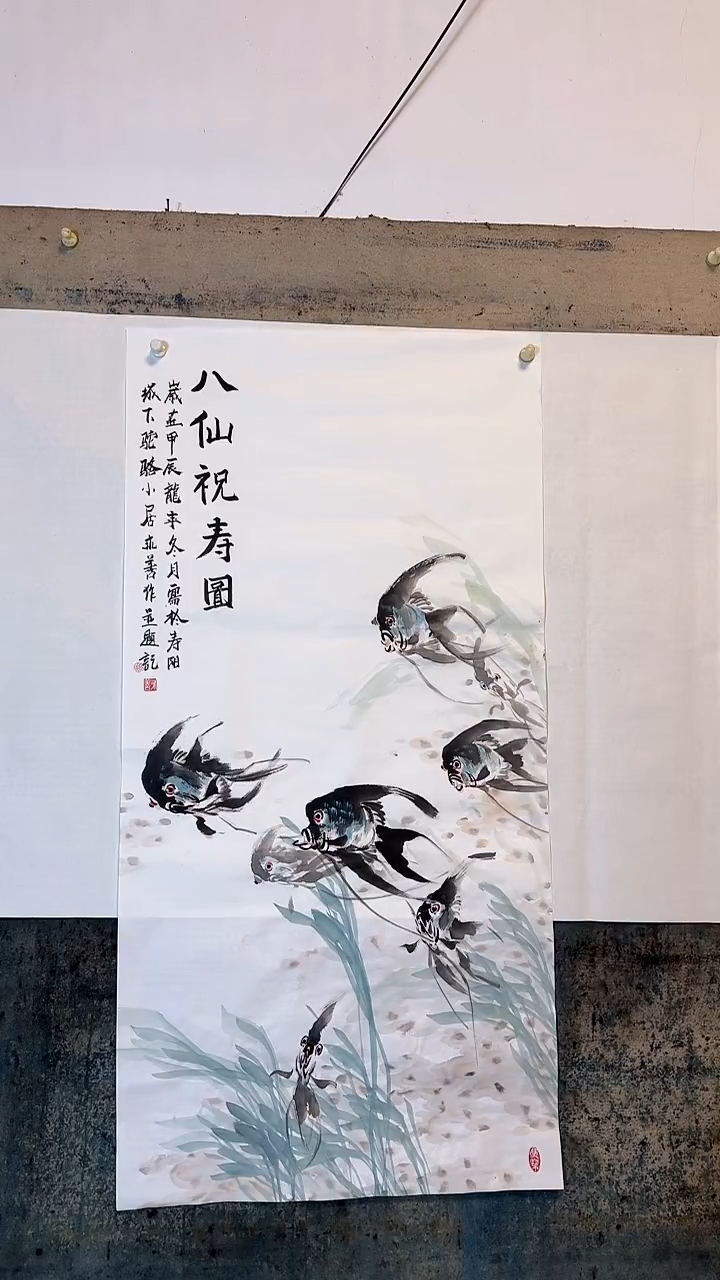 八仙祝寿圖
歲在甲辰龍年冬月寫於寿阳
城下驼骆小居 善作並題記